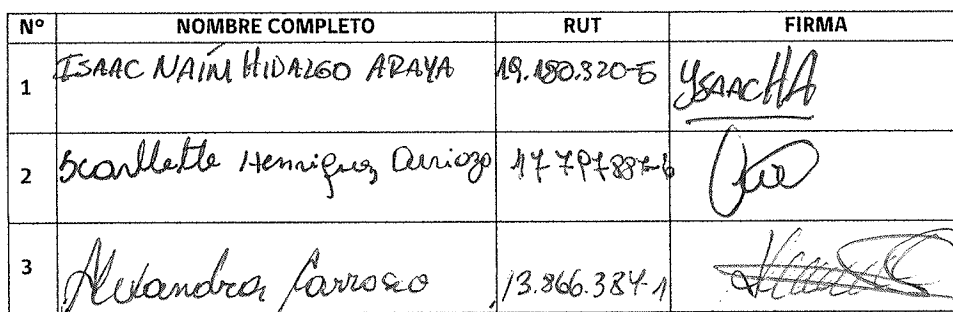 N° NOMBRE COMPLETO RUT FIRMA
1 ISAAC NAÍM HIDALGO ARAYA 19.180.320-5 YSAACHA
2 Scarllette Henriquez 17 797887-6
3 Alexandra Carrasco 13.866.384-1